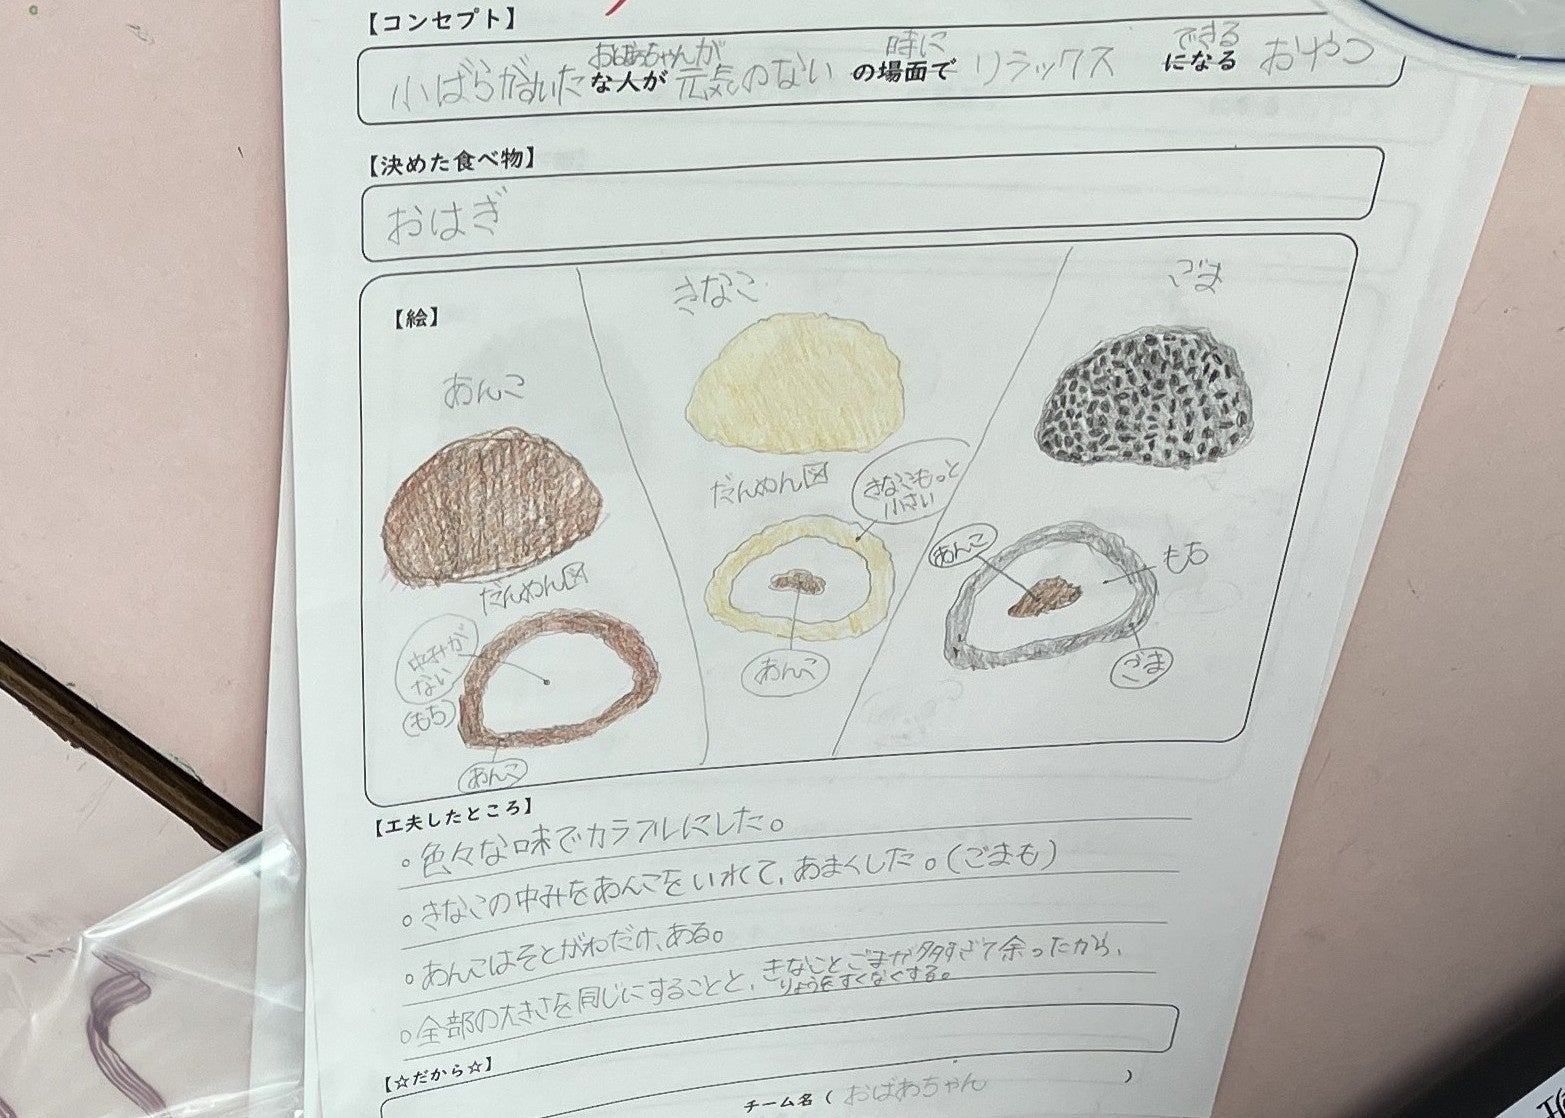 【コンセプト】
小ばらがすいたおばあちゃんが元気のない時にリラックスできるおやつ
な人が の場面で になる
【決めた食べ物】
おはぎ
【絵】
あんこ
だんめん図
中みが
ない
(もち)
あんこ
きなこ
だんめん図
きなこもっと
小さい
あんこ
ごま
あんこ
もち
ごま
【工夫したところ】
◦色々な味でカラフルにした。
◦きなこの中みをあんこをいれて、あまくした。(ごまも)
◦あんこはそとがわだけ、ある。
◦全部の大きさを同じにすることと、きなことごまが多すぎて余ったから、
りょうをすくなくする。
【☆だから☆】
チーム名(おばあちゃん)